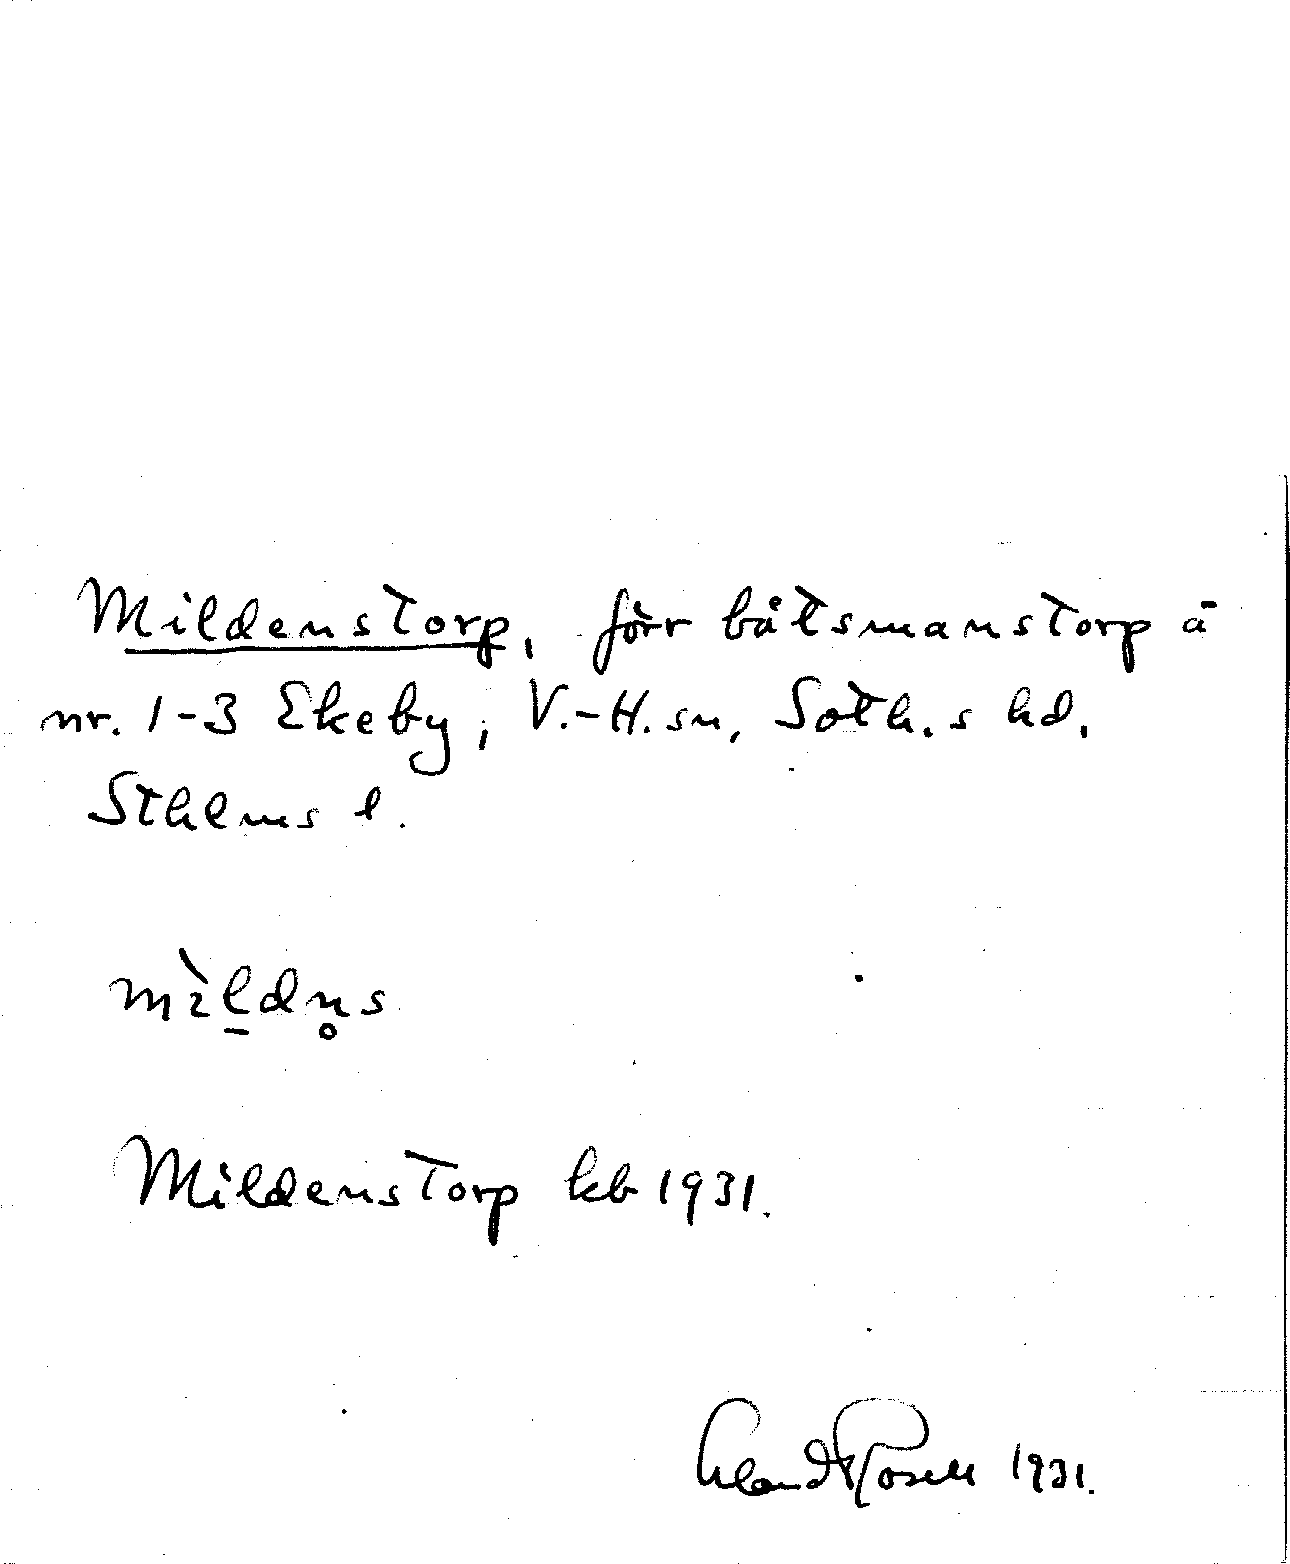 Mildenstorp, förr båtsmanstorp å
nr. 1-3 Ekeby, V.-H. sn, Soth.s hd,
Sthlms l.
mı̀l̠dn̥s
Mildenstorp kb 1931.
Erland Rosell 1931.